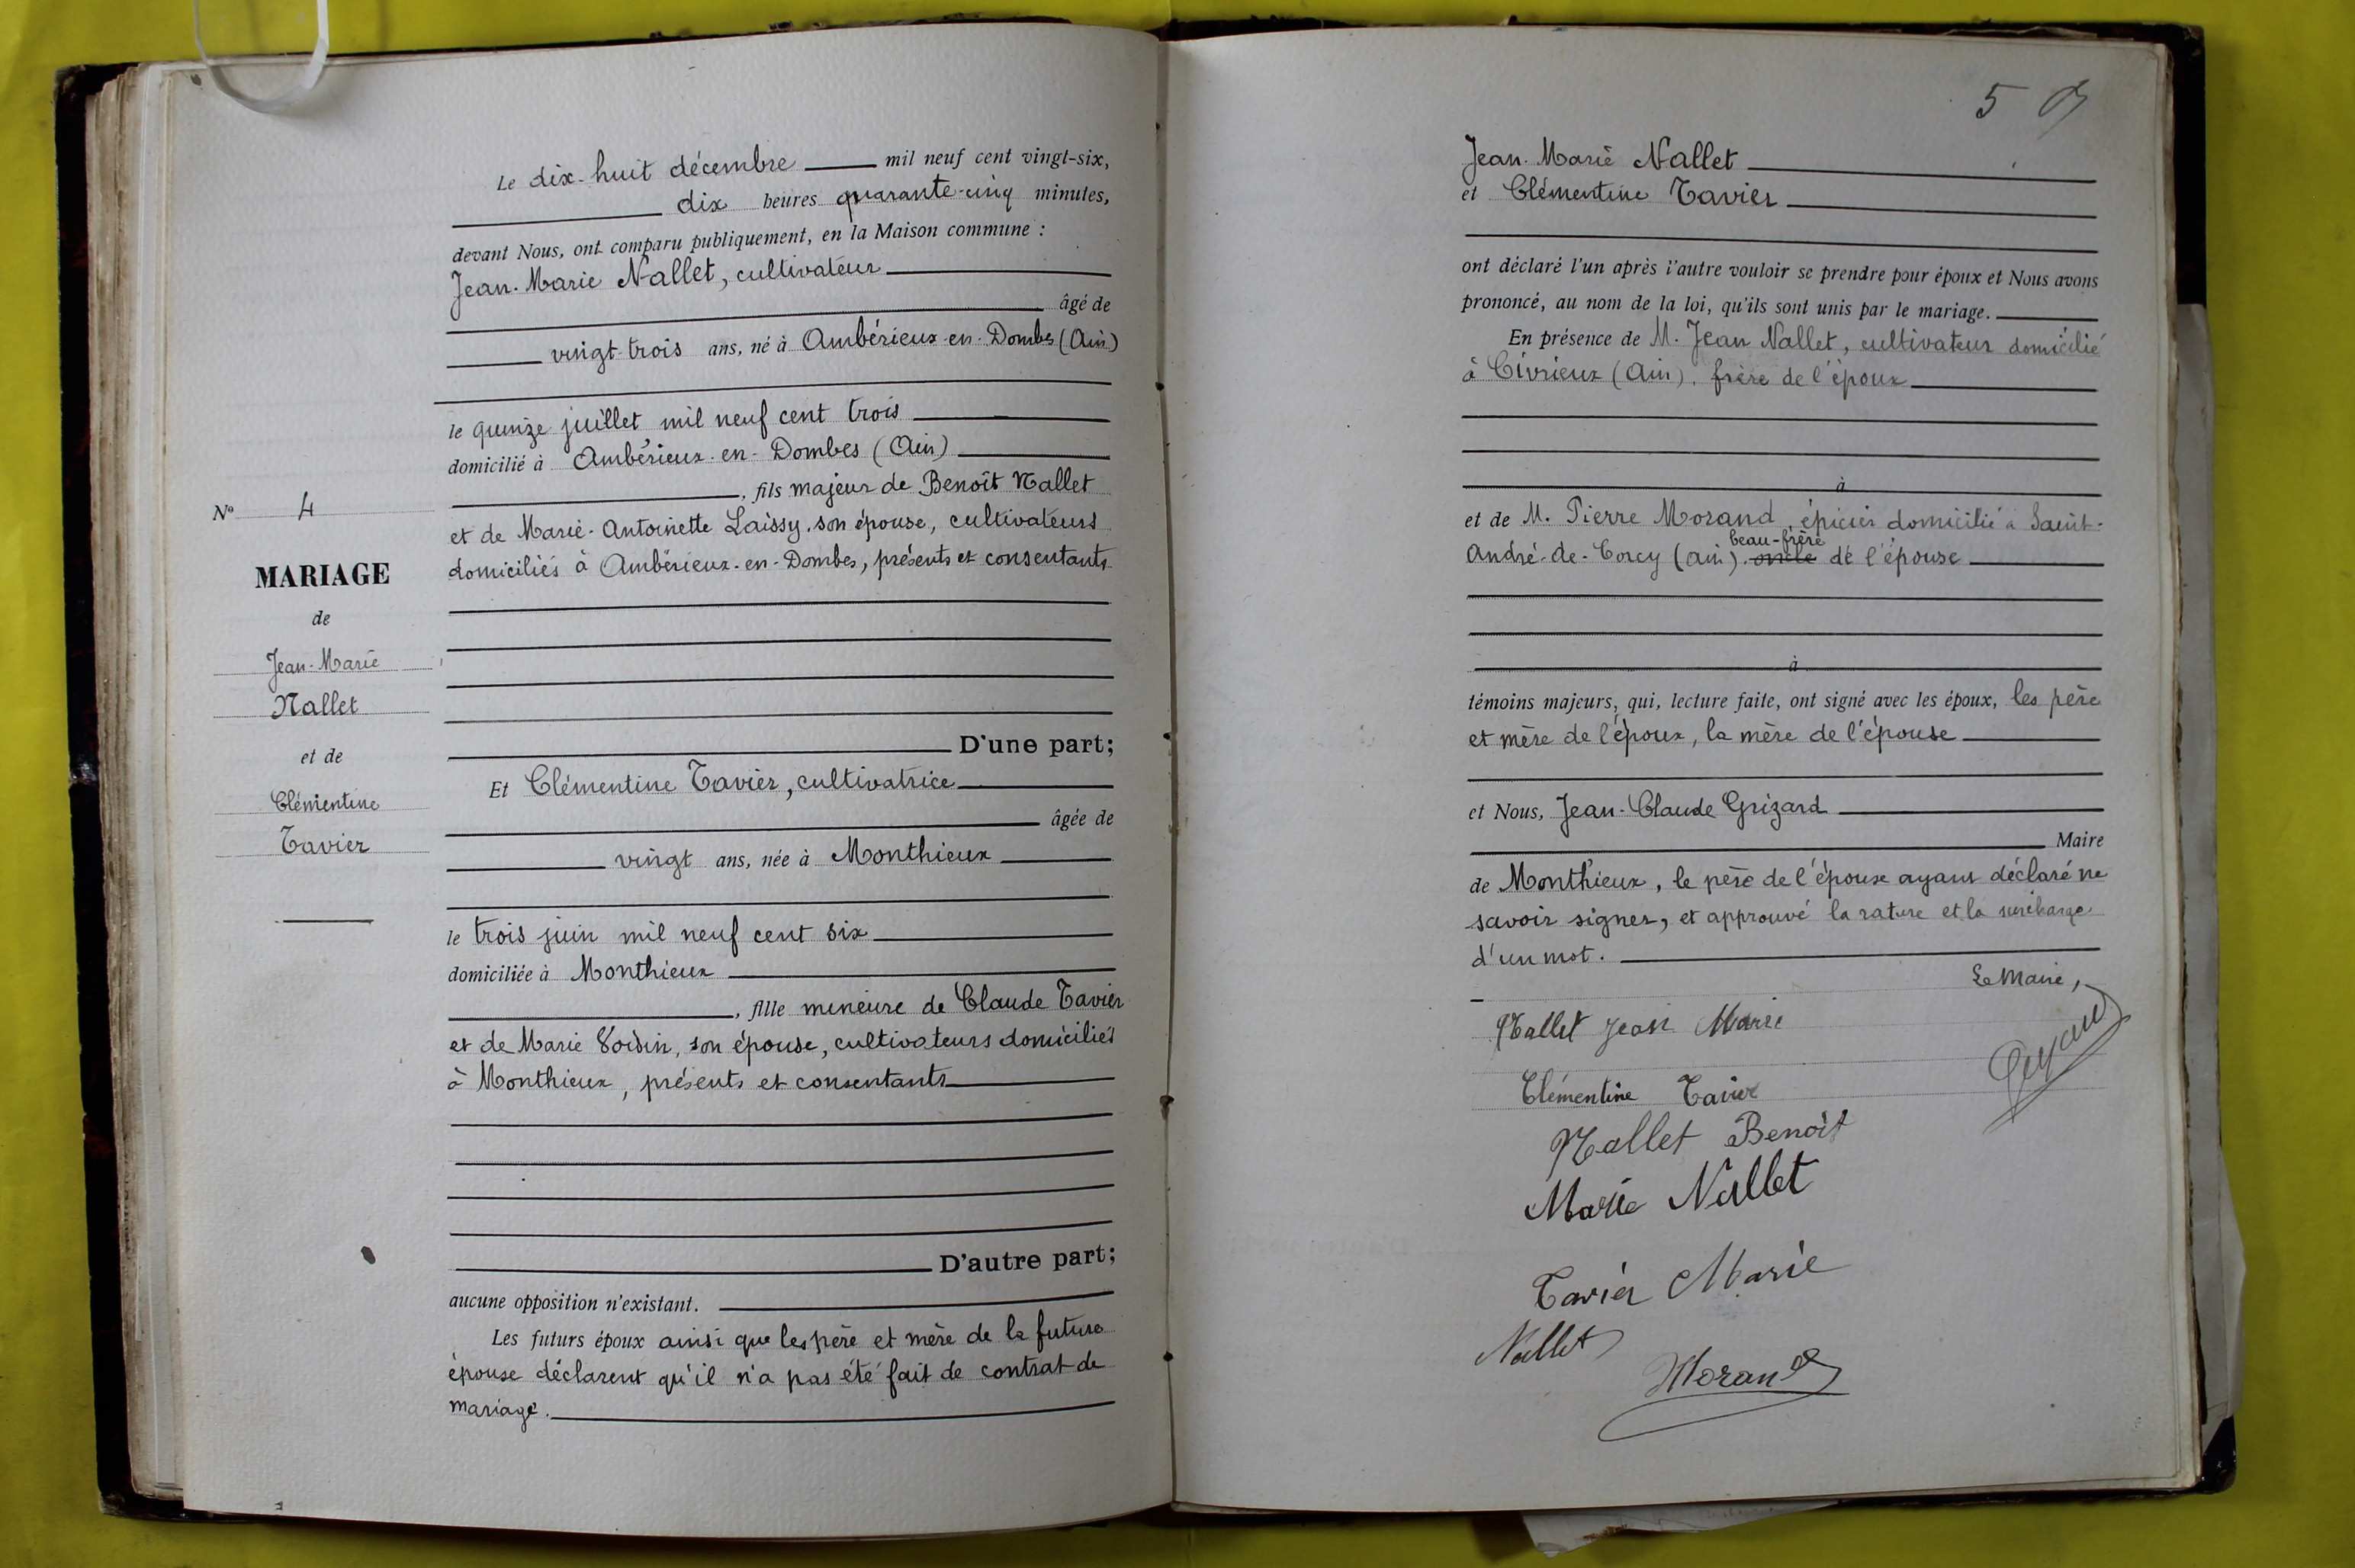 Le dix-huit décembre mil neuf cent vingt-six,
dix heures quarante-cinq minutes,
devant Nous, ont comparu publiquement, en la Maison commune :
Jean-Marie Nallet, cultivateur
âgé de
vingt-trois ans, né à Ambérieux-en-Dombes (Ain)
le quinze juillet mil neuf cent trois
domicilié à Ambérieux-en-Dombes (Ain)
, fils majeur de Benoît Nallet
et de Marie-Antoinette Laissy, son épouse, cultivateurs
domiciliés à Ambérieux-en-Dombes, présents et consentants
N° 4
MARIAGE
de
Jean-Marie
Nallet
et de
Clémentine
Tavier
D'une part;
Et Clémentine Tavier, cultivatrice
âgée de
vingt ans, née à Monthieux
le trois juin mil neuf cent six
domiciliée à Monthieux
, fille mineure de Claude Tavier
et de Marie Voisin, son épouse, cultivateurs domiciliés
à Monthieux, présents et consentants
D'autre part;
aucune opposition n'existant.
Les futurs époux ainsi que les père et mère de la future
épouse déclarent qu'il n'a pas été fait de contrat de
mariage.
5
Jean-Marie Nallet
et Clémentine Tavier
ont déclaré l'un après l'autre vouloir se prendre pour époux et Nous avons
prononcé, au nom de la loi, qu'ils sont unis par le mariage.
En présence de M. Jean Nallet, cultivateur domicilié
à Civrieux (Ain), frère de l'époux
à
et de M. Pierre Morand, épicier domicilié à Saint-
beau-frère
André-de-Corcy (Ain). oncle de l'épouse
à
témoins majeurs, qui, lecture faite, ont signé avec les époux, les père
et mère de l'époux, la mère de l'épouse
et Nous, Jean-Claude Grizard
Maire
de Monthieux, le père de l'épouse ayant déclaré ne
savoir signer, et approuvé la rature et la surcharge
d'un mot.
Le Maire,
Nallet Jean Marie
Clémentine Tavier
Nallet Benoît
Marie Nallet
Tavier Marie
Nallet
Morand